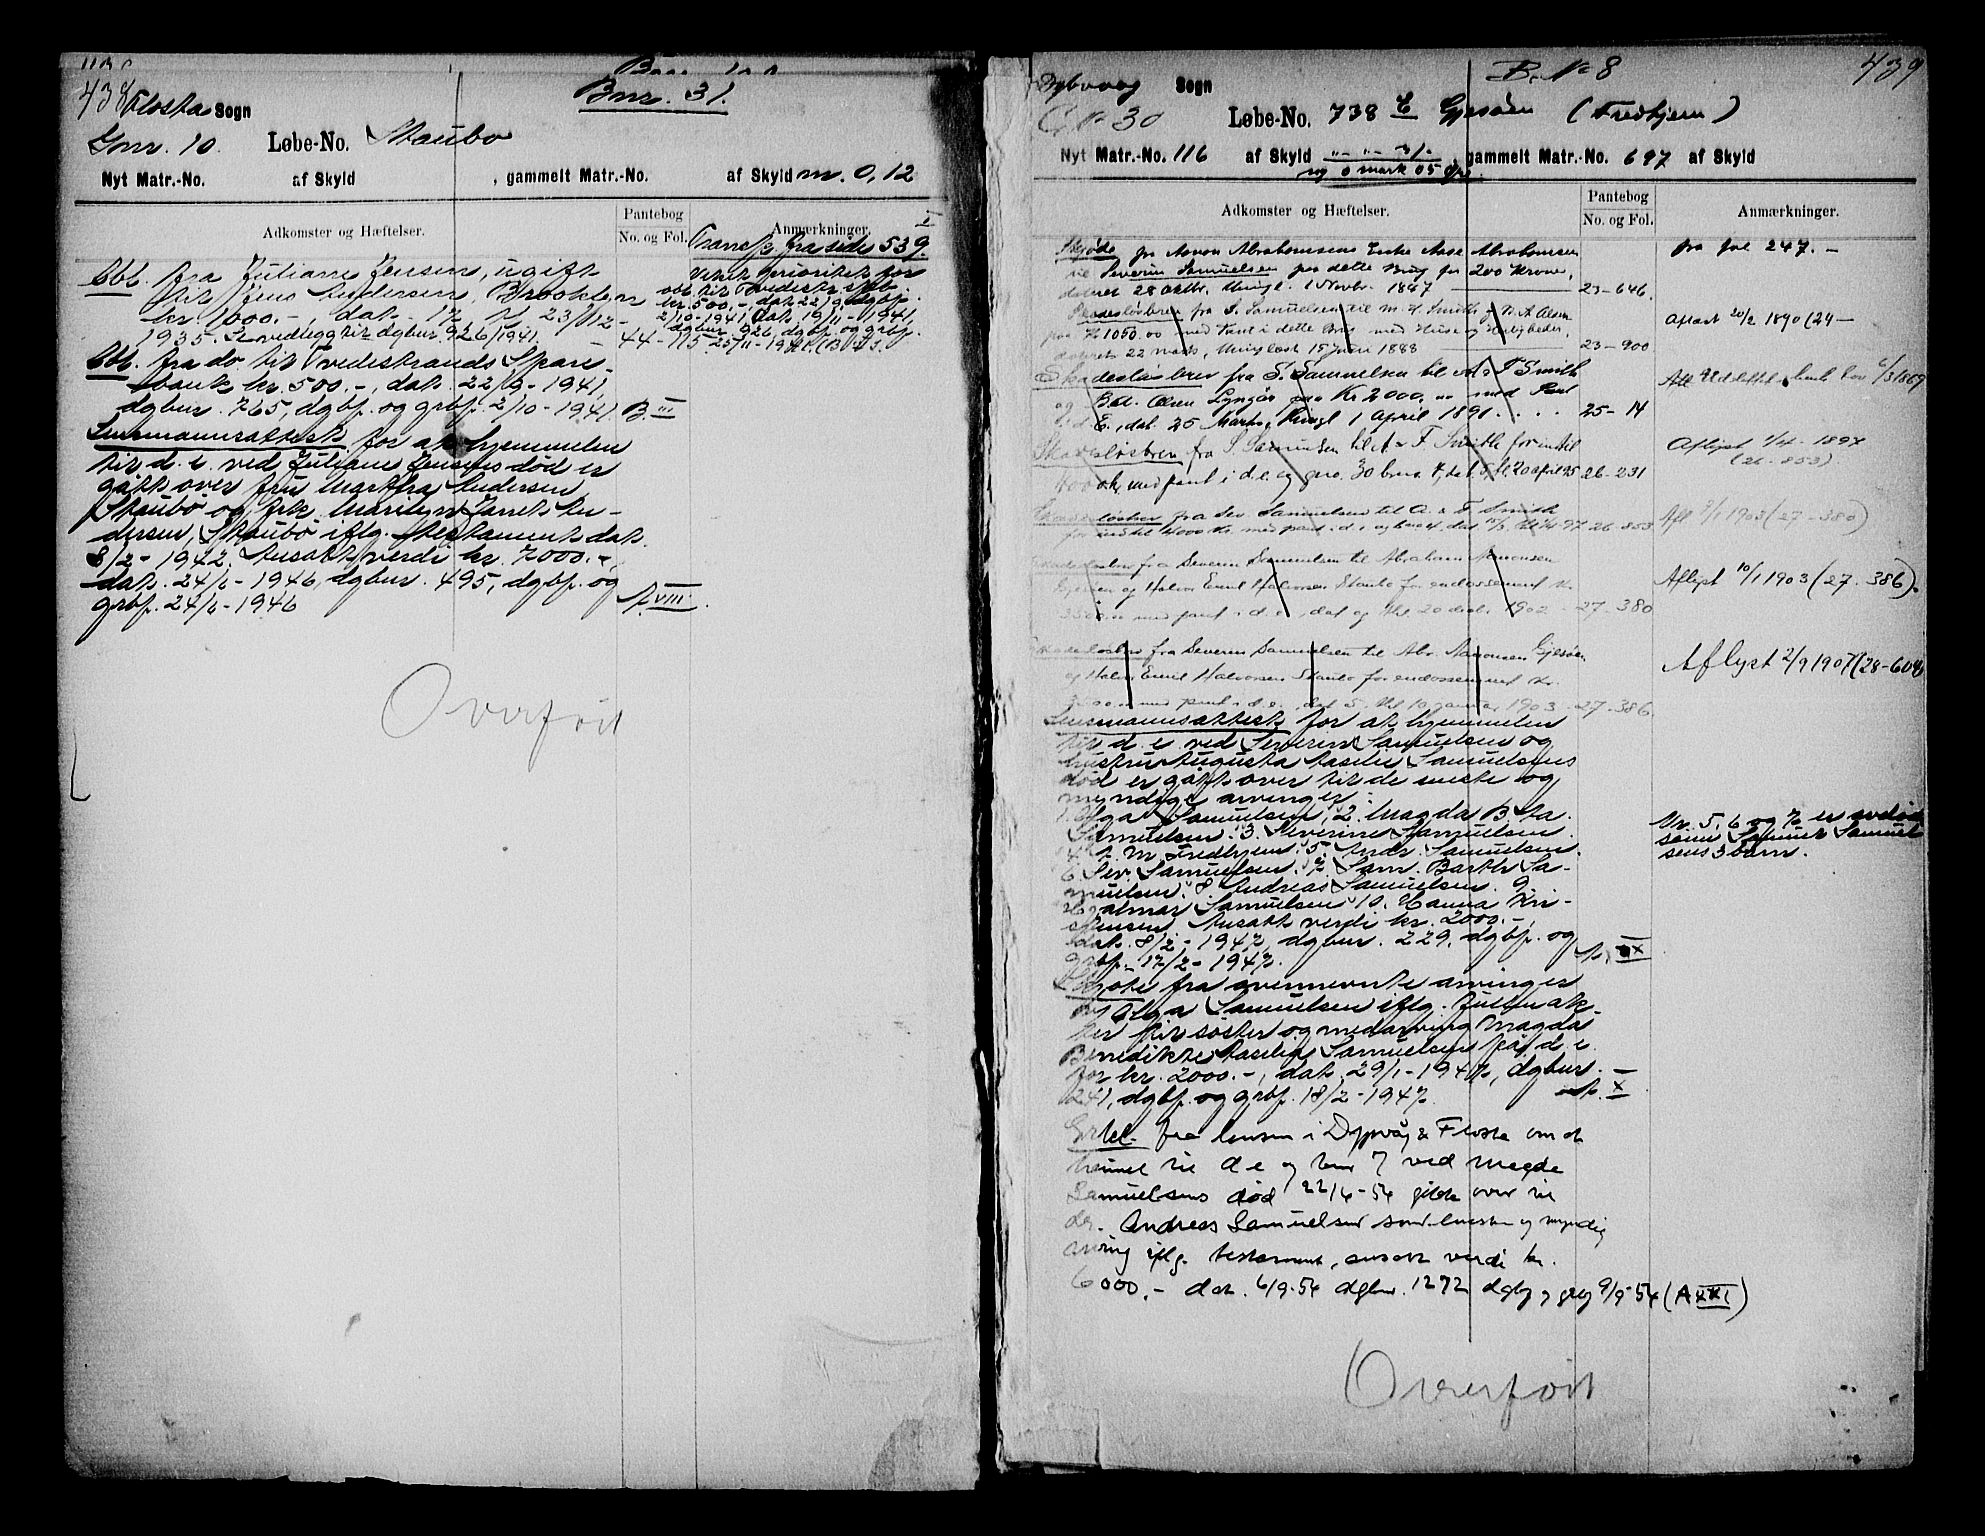 438 Flosta Sogn
Bnr. 31.
Gnr. 10. Løbe-No. Staubo
Nyt Matr.-No. af Skyld , gammelt Matr.-No. af Skyld m. 0,12
Adkomster og Hæftelser.
Pantebog
No. og Fol.
Anmærkninger.
Transp. fra side 539.
Obl. fra Juliane Jensen, ugift
til Jens Andersen, Brooklyn
kr 1000.-, dat. 17, 23/12-
1935. Se vedlegg til dgbnr. 926/1941. 44-115
Veket prioritet for
obl. til Tvedestr. spb.
kr. 500.-, dat. 22/9, dgbf.
2/10-1941, dat. 19/11-1941,
dgbnr. 926, dgbf. og grbf.
25/11-1941.
Obl. fra do. til Tvedestrands Spare-
bank kr. 500.-, dat. 22/9-1941,
dgbnr. 765, dgbf. og grbf. 2/10-1941. B. III
Lensmannsattest for at hjemmelen
til d. e. ved Juliane Jensens død er
gått over fru Marttra Andersen
Staubø og frk. Marilyn Janet An-
dersen, Staubø iflg. testament dat.
8/2-1942. Ansatt verdi kr. 7000.-,
dat. 24/6-1946, dgbnr. 495, dgbf. og
grbf. 24/6-1946 A. VIII.
Overført
439
Dybvaag Sogn
B. No 8
G. No 30 Løbe-No. 738 E Gjesøen (Fredhjem)
Nyt Matr.-No. 116 af Skyld " - " - 31. , gammelt Matr.-No. 697 af Skyld
ny 0 mark 05 øre.
Adkomster og Hæftelser.
Pantebog
No. og Fol.
Anmærkninger.
Skjøde fra Aaron Abrahamsens Enke Aase Abrahamsen
til Severin Samuelsen paa dette Brug for 200 Kroner,
dateret 28 Oktbr. thingl. 1 Novbr. 1887 23-646.
fra fol 247.-
Skadesløsbrev fra S. Samuelsen til M. F. Smith og N. A. Olsen
paa Kr 1050.00 med Pant i dette Brug med Huse og Herligheder,
dateret 22 marts, thinglæst 15 Juni 1888 23-900
Aflæst 20/2 1890 (24-
Skadesløsbrev fra S. Samuelsen til A & F Smith
og Bet. Olsen Lyngør paa Kr 2000. " med Pant
i d. E., dat. 25 Marts, thingl 1 April 1891. . . . 25-14
Skadesløsbrev fra S. Samuelsen til A & F. Smith for indtil
4000 kr, med pant i d. e. og gno. 30 bno. 4, dat. 5, tl. 20 april 95 26-231
Aflyst 1/4-1897
(26.853)
Skadesløsbrev fra Sev. Samuelsen til A. & F. Smith
for indtil 4000 Kr. med pant i d. e. og bno 4, dat 26.853
Afl 9/1 1903 (27-380)
Skadesløsbrev fra Severin Samuelsen til Abraham Aaronsen
Gjesøen og Halvor Emil Halvorsen Staubo for endossement kr.
3500.00 med pant i d. e., dat og thl. 20 decbr. 1902 - 27-380
Aflyst 10/1 1903 (27.386).
Skadesløsbrev fra Severin Samuelsen til Abr. Aaronsen Gjesøen
og Halvor Emil Halvorsen Staubo for endossement kr.
med pant i d. e. dat 5, thl 10 januar 1903 - 27.386.
Aflyst 2/9 1907 (28-608)
Lensmannsattest for at hjemmelen
til d. e. ved Severin Samuelsen og
hustru Augusta Tasilie Samuelsens
død er gått over til de eneste og
myndige arvinger:
1. Olga Samuelsen, 2. Magda B. Ta.
Samuelsen. 3. Severine Samuelsen.
4. T. M. Fredhjem. 5. Andr. Samuelsen.
6. Sev. Samuelsen. 7. Sam. Barth Sa-
muelsen. 8. Andreas Samuelsen. 9.
Hjalmar Samuelsen 10. Hanna Kri-
stensen. Ansatt verdi kr. 2000.-,
dat. 8/2-1947, dgbnr. 229, dgbf. og
grbf. 17/2-1947. A. IX
Nr. 5, 6 og 7 er avdøde
sønn Samuel Samuel
sens 3 barn.
Skjøte fra ovennevnte arvinger
ov/ Olga Samuelsen iflg. fullmak-
ter til søster og medarving Magda
Benedikte Tasilie Samuelsen på d. e.
for kr. 2000.-, dat. 29/1-1947, dgbnr.
241, dgbf. og grbf. 18/2-1947. A. X
Erkl. fra lensm i Dypvåg & Flosta om at
heimel til d e og bnr 7 ved Magda
Samuelsens død 22/6-54 gikk over til
der. Andreas Samuelsen som eneste og myndig
arving iflg. testament, ansatt verdi kr.
6000.- dat. 6/9-54 dgbnr. 1272 dgbf og grbf 9/9-54 (A XXI)
Overført